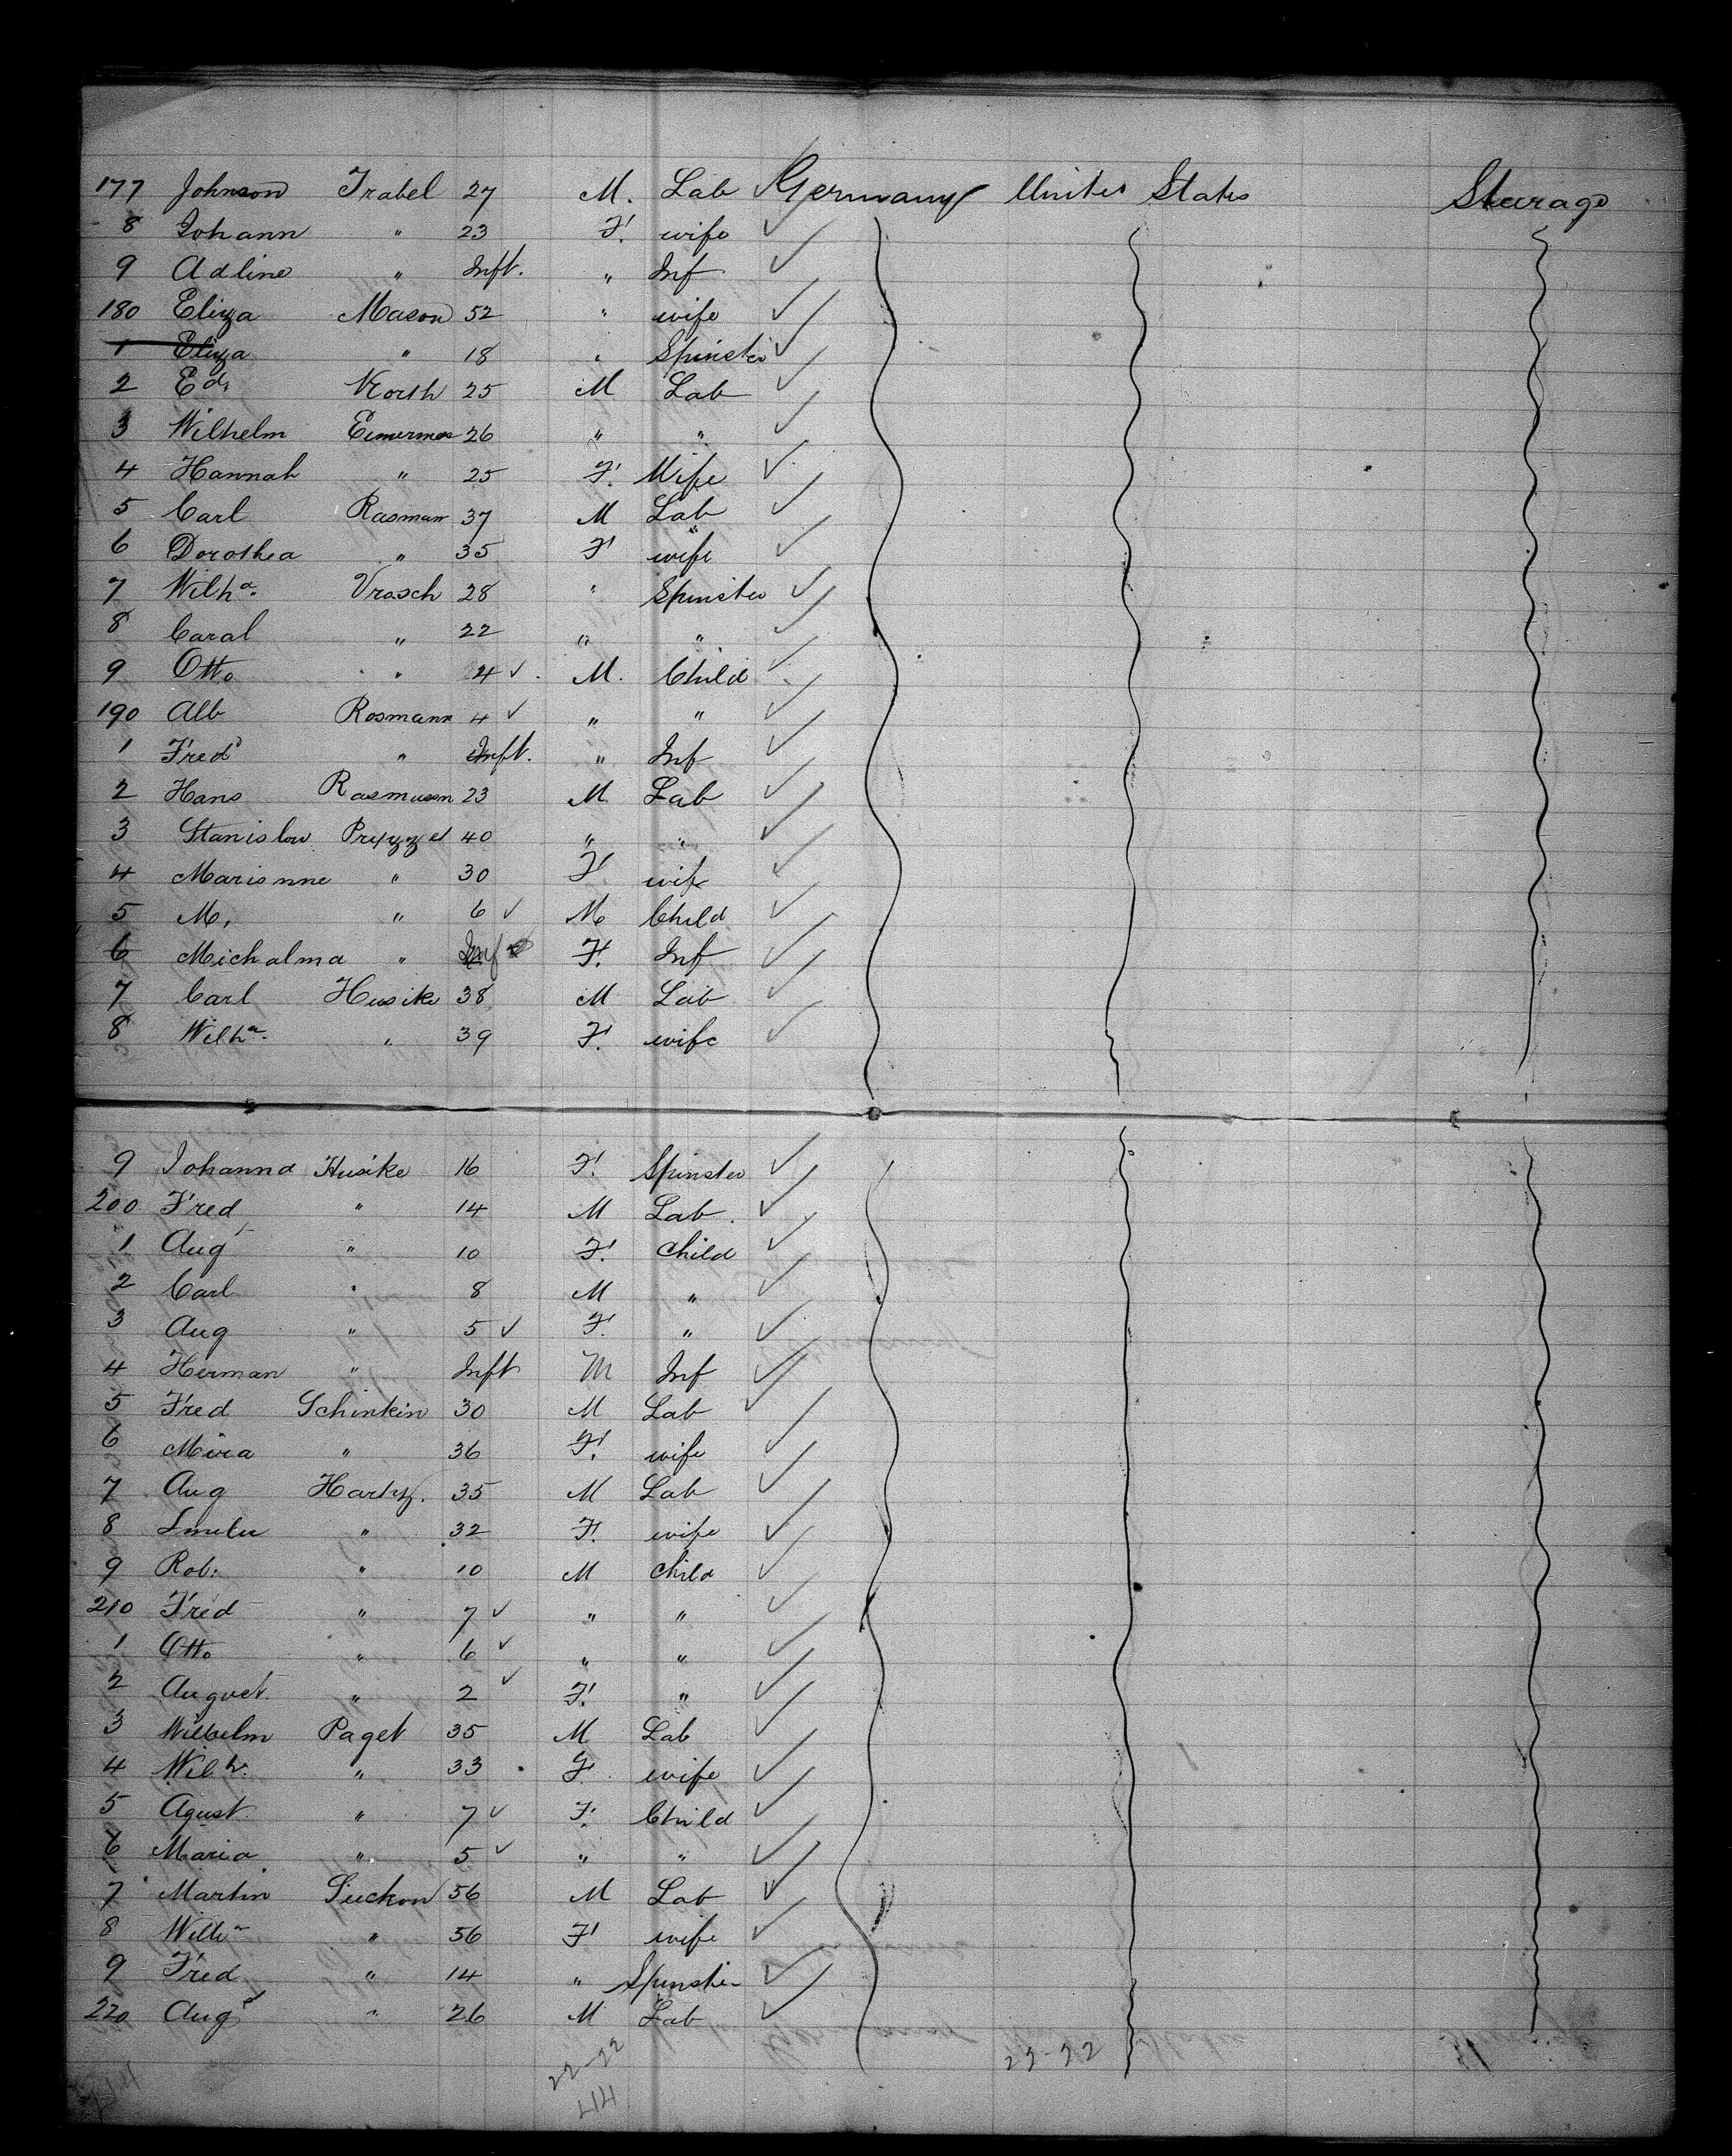 177 Johnson Trabel 27 M. Lab Germany United States Steerage
8 Johann " 23 F. wife
9 Adline " Inft. " Inf
180 Eliza Mason 52 " wife
1 Eliza " 18 " Spinster
2 Ed. North 25 M Lab
3 Wilhelm Eimermor 26 " "
4 Hannah " 25 F. Wife
5 Carl Rasman 37 M Lab
6 Dorothea " 35 F wife
7 Wilha. Vrasch 28 " Spinster
8 Caral " 22 " "
9 Otto " 4 M. Child
190 Alb Rosmann 4 " "
1 Fredd " Inft. " Inf
2 Hans Rasmussn 23 M. Lab
3 Stanislow Pryzzel 40 " "
4 Marianne " 30 F wife
5 M. " 6 M Child
6 Michalma " Inf F. Inf
7 Carl Husike 38 M Lab
8 Wilha. " 39 F. wife
9 Johanna Husike 16 F. Spinster
200 Fred " 14 M Lab.
1 Augt " 10 F. Child
2 Carl " 8 M "
3 Aug " 5 F. "
4 Herman " Inft M Inf
5 Fred Schinkin 30 M Lab
6 Mira " 36 F. wife
7 Aug Hartz. 35 M Lab
8 " 32 F. wife
9 Rob. " 10 M Child
210 Fred " 7 " "
1 Otto " 6 " "
2 August. " 2 F. "
3 Wilhelm Paget 35 M Lab
4 Wilh. " 33 F. wife
5 Agust " 7 F. Child
6 Maria " 5 " "
7 Martin Suckow 56 M Lab
8 " 56 F wife
9 Fred " 14 " Spinster
220 Augt " 26 M Lab
22-22 22-22